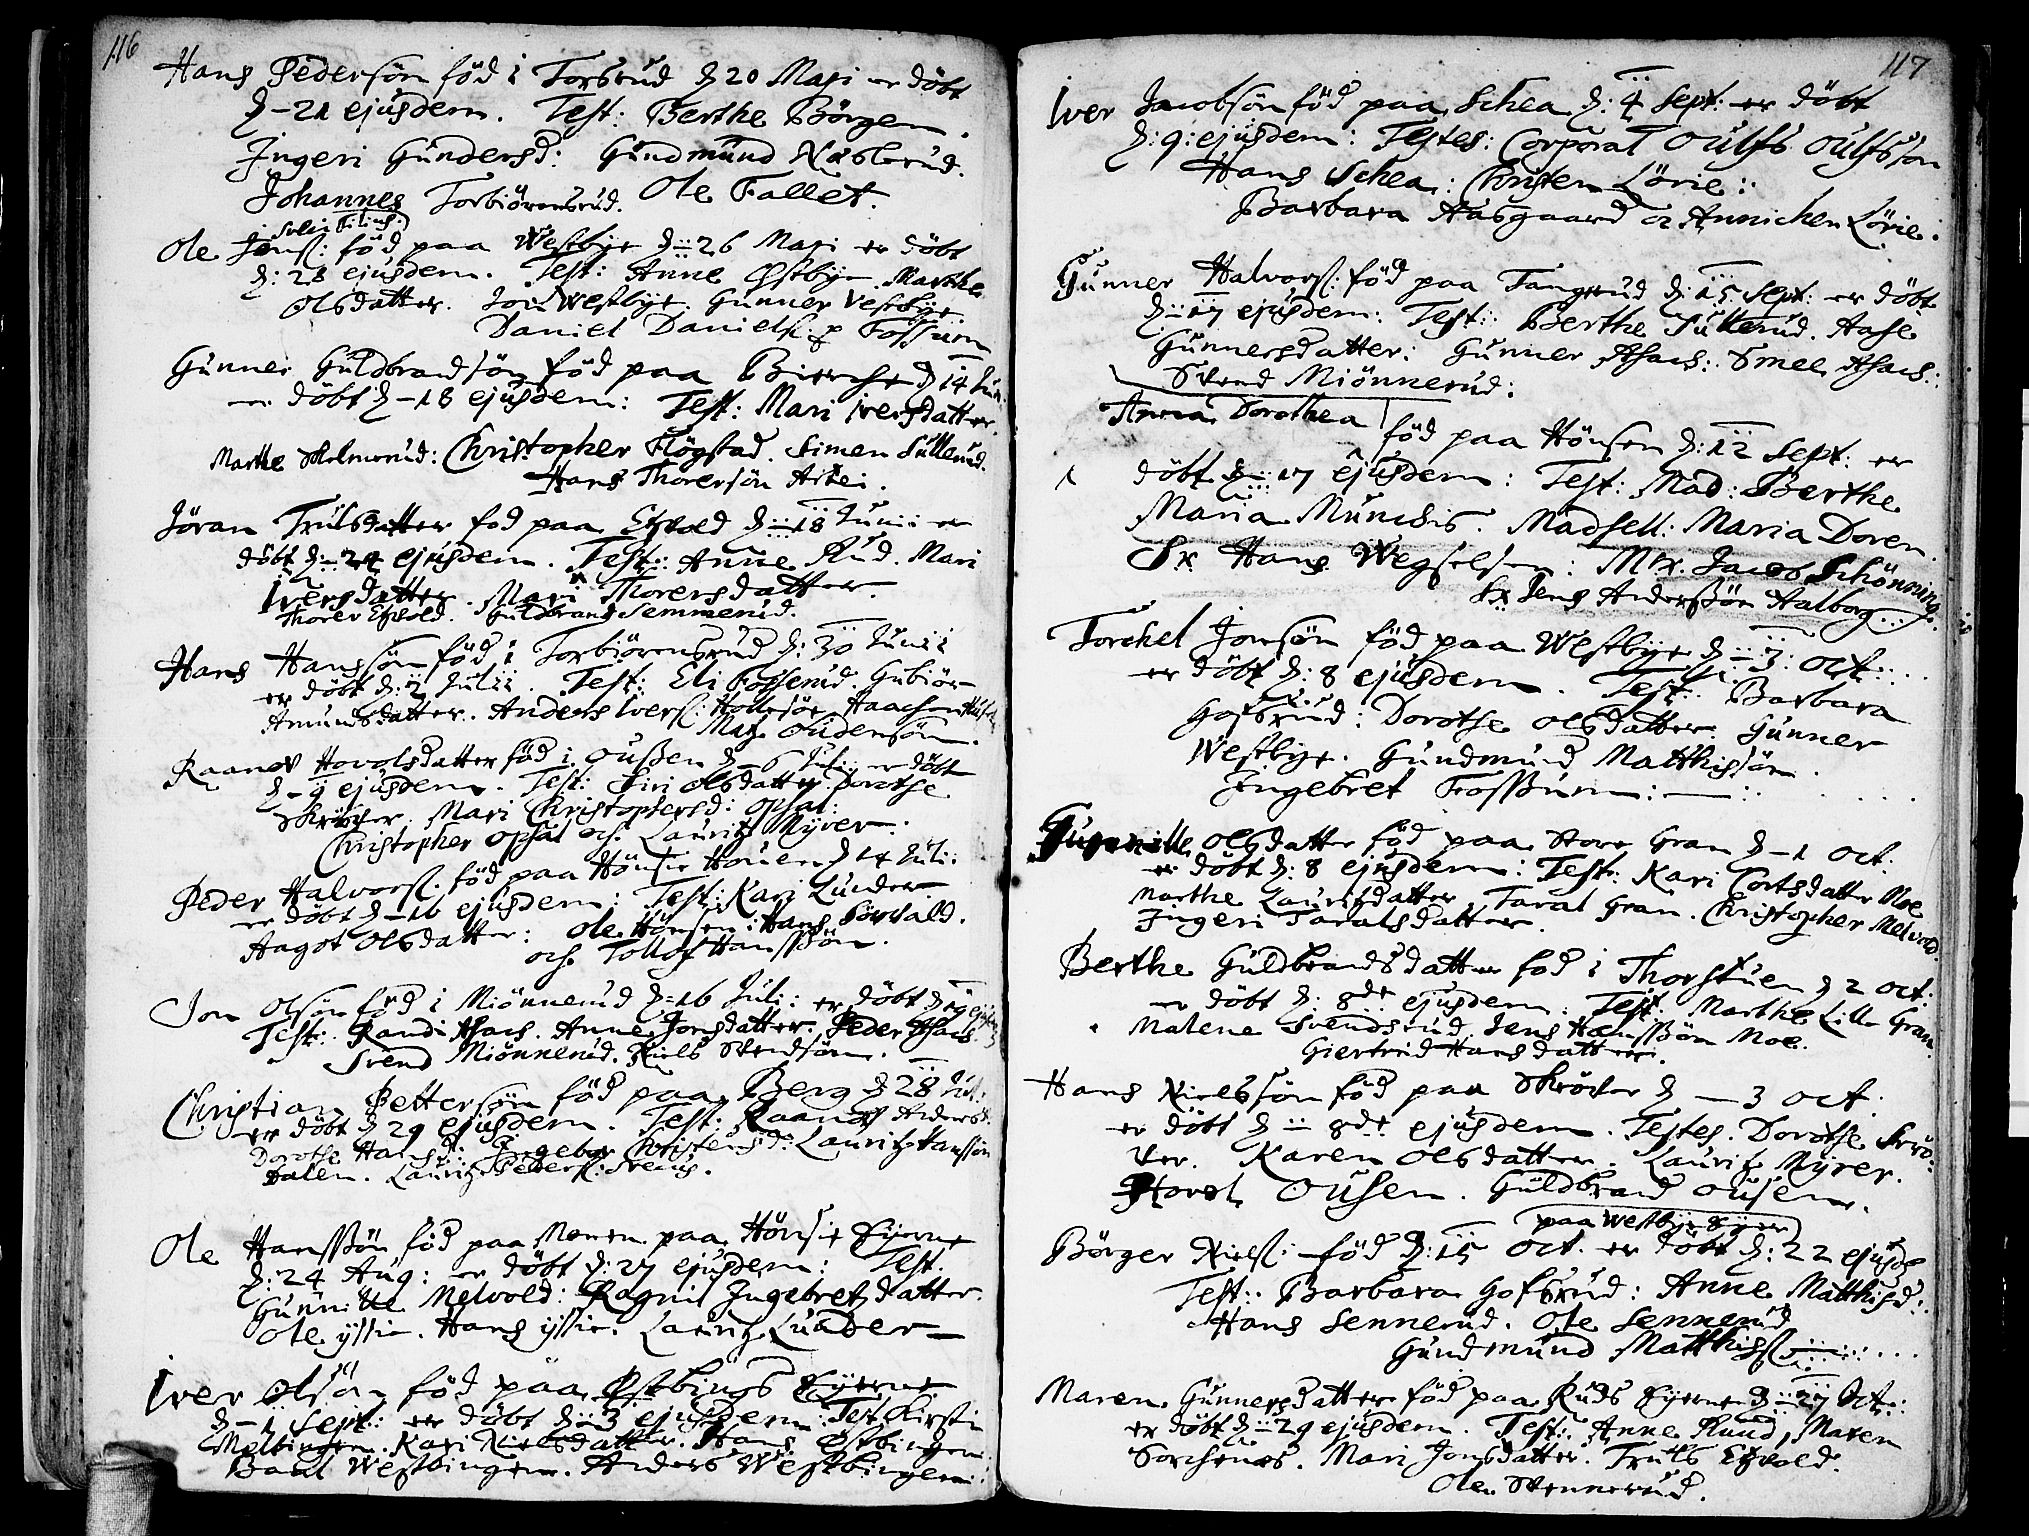 116
Hans Pedersön föd i Torsrud d 20 Maji er döbt
d - 21 ejusdem. Test: Berthe Börgen.
Ingeri Gundersd: Gundmund Næblerud.
Johannes Torbiörensrud. Ole Fallet.
Ole Jons: föd paa Westbye d: 26 Maji er döbt
d: 28 ejusdem. Test: Anne Østbye. Marthe
Olsdatter. Jon Westbye. Gunner Vestbye
Daniel Daniels: Fossum
Gunner Guldbrandsön föd paa Bierche d 14 Jun
er döbt d - 18 ejusdem: Test: Mari Iversdatter.
Marthe Skelmerud: Christopher Flögstad. Simen Sullerud.
Hans Thorersön
Jöran Trulsdatter föd paa Etzvold d: 18 Junii er
döbt d: 24 ejusdem. Test: Anne Rud. Mari
Iversdatter. Mari Thorersdatter.
Thorer Etzvold. Guldbrand Semmerud.
Hans Hanssön föd i Torbiörensrud d: 30 Junii
er döbt d: 2 Julii. Test: Eli Fosserud. Gubiör
Amundsdatter. Anders Ivers: Haachen
Matz Oudensön.
Raanov Horolsdatter föd i Oussen d - 6 Julii er döbt
d - 9 ejusdem. Test: Siri Olsdatter Dorothe
Skröcher. Mari Christophersd: Opsal:
Christopher Opsal och Lauritz Myrer.
Peder Halvors: föd paa Hönsie Houen d 14 Juli:
er döbt d - 16 ejusdem: Test: Kari Lunder
Aagot Olsdatter: Ole Hönsen: Hans Sörvald.
och Tollof Hanssön.
Jon Olsön föd i Miönnerud d: 16 Juli: er döbt d 19
Test: Randi Asachs. Anne Jonsdatter. Peder Asachs
Svend Miönnerud. Niels Svendsön.
Christian Pettersön föd paa Berg d 28 Jul:
er döbt d 29 ejusdem. Test: Raanov Andersd:
Dorothe Hansd: Ingebor Christensd: Lauritz Hanssön
Dalen. Lauritz Peders: Svens.
Ole Hanssön föd paa Moren paa Hönsie Eyerne
d: 24 Aug: er döbt d: 27 ejusdem: Test.
Gunnille Melvold: Ragni Ingebretzdatter.
Ole yssie. Hans yssie. Lauritz Lunder
Iver Olsön föd paa Østbings Eyerne
d - 1 Sept: er döbt d: 3 ejusdem: Test: Kirsti
Melbingen. Kari Nielsdatter. Hans Østbingen
Baul Westbingen. Anders Westbingen:
117
Iver Jacobsön föd paa Schea d: 4 Sept: er döbt
d: 9: ejusdem: Testes: Corporal Oulfs Oulfssön
Hans Schea: Christen Lörie:
Barbara Aasgaard oc Annichen Lörie.
Gunner Halvors: föd paa Tangerud d: 15 Sept: er döbt
d: 17 ejusdem: Test: Berthe Sullerud. Aase
Gunnersdatter: Gunner Asachs: Smee Asachs:
Svend Miönnerud:
Anna Dorothea föd paa Hönsen d: 12 Sept: er
döbt d: 17 ejusdem: Test: Mad: Berthe
Maria Munchis. Madsell: Maria Doren.
Sr Hans Wegselsen: Mr. Jacob Schönning.
Sr Jens Anderssön Aalborg...
Torchel Jonsön föd paa Westbye d: 3: Oct:
er döbt d: 8 ejusdem. Test: Barbara
Gofsrud: Dorothe Olsdatter. Gunner
Westbye. Gundmund Matthissön.
Ingebret Fossum:
Gunnille Olsdatter föd paa Store Gran d - 1 Oct:
er döbt d: 8 ejusdem: Test: Kari Cortsdatter Moe
Marthe Lauritsdatter, Taral Gran. Christopher Melvold.
Ingeri Taralsdatter.
Berthe Guldbrandsdatter föd i Thorstuen d 2 Oct:
er döbt d: 8de ejusdem: Test: Marthe Lille Gran.
Malene Svendsrud. Jens Hanssön Moe.
Giertrud Hansdatter.
Hans Nielssön föd paa Skröcher d - 3 Oct:
er döbt d: 8de ejusdem. Testes. Dorothe Skrö:
ker. Karen Olsdatter. Lauritz Myrer.
Horol Ousen. Guldbrand Ousen.
paa Westbye Eyer
Börger Niels: föd d: 15 Oct. er döbt d: 22 ejusde
Test: Barbara Gofsrud: Anne Matthisd:
Hans Sennerud. Ole Sennerud
Gundmund Matthiss:
Maren Gunnersdatter föd paa Ruds Eyerne d: 27 Oct:
er döbt d: 29 ejusdem. Test: Anne Ruud, Maren
Sorchenes. Mari Jonsdatter. Truls Etzvold.
Ole Skennerud.